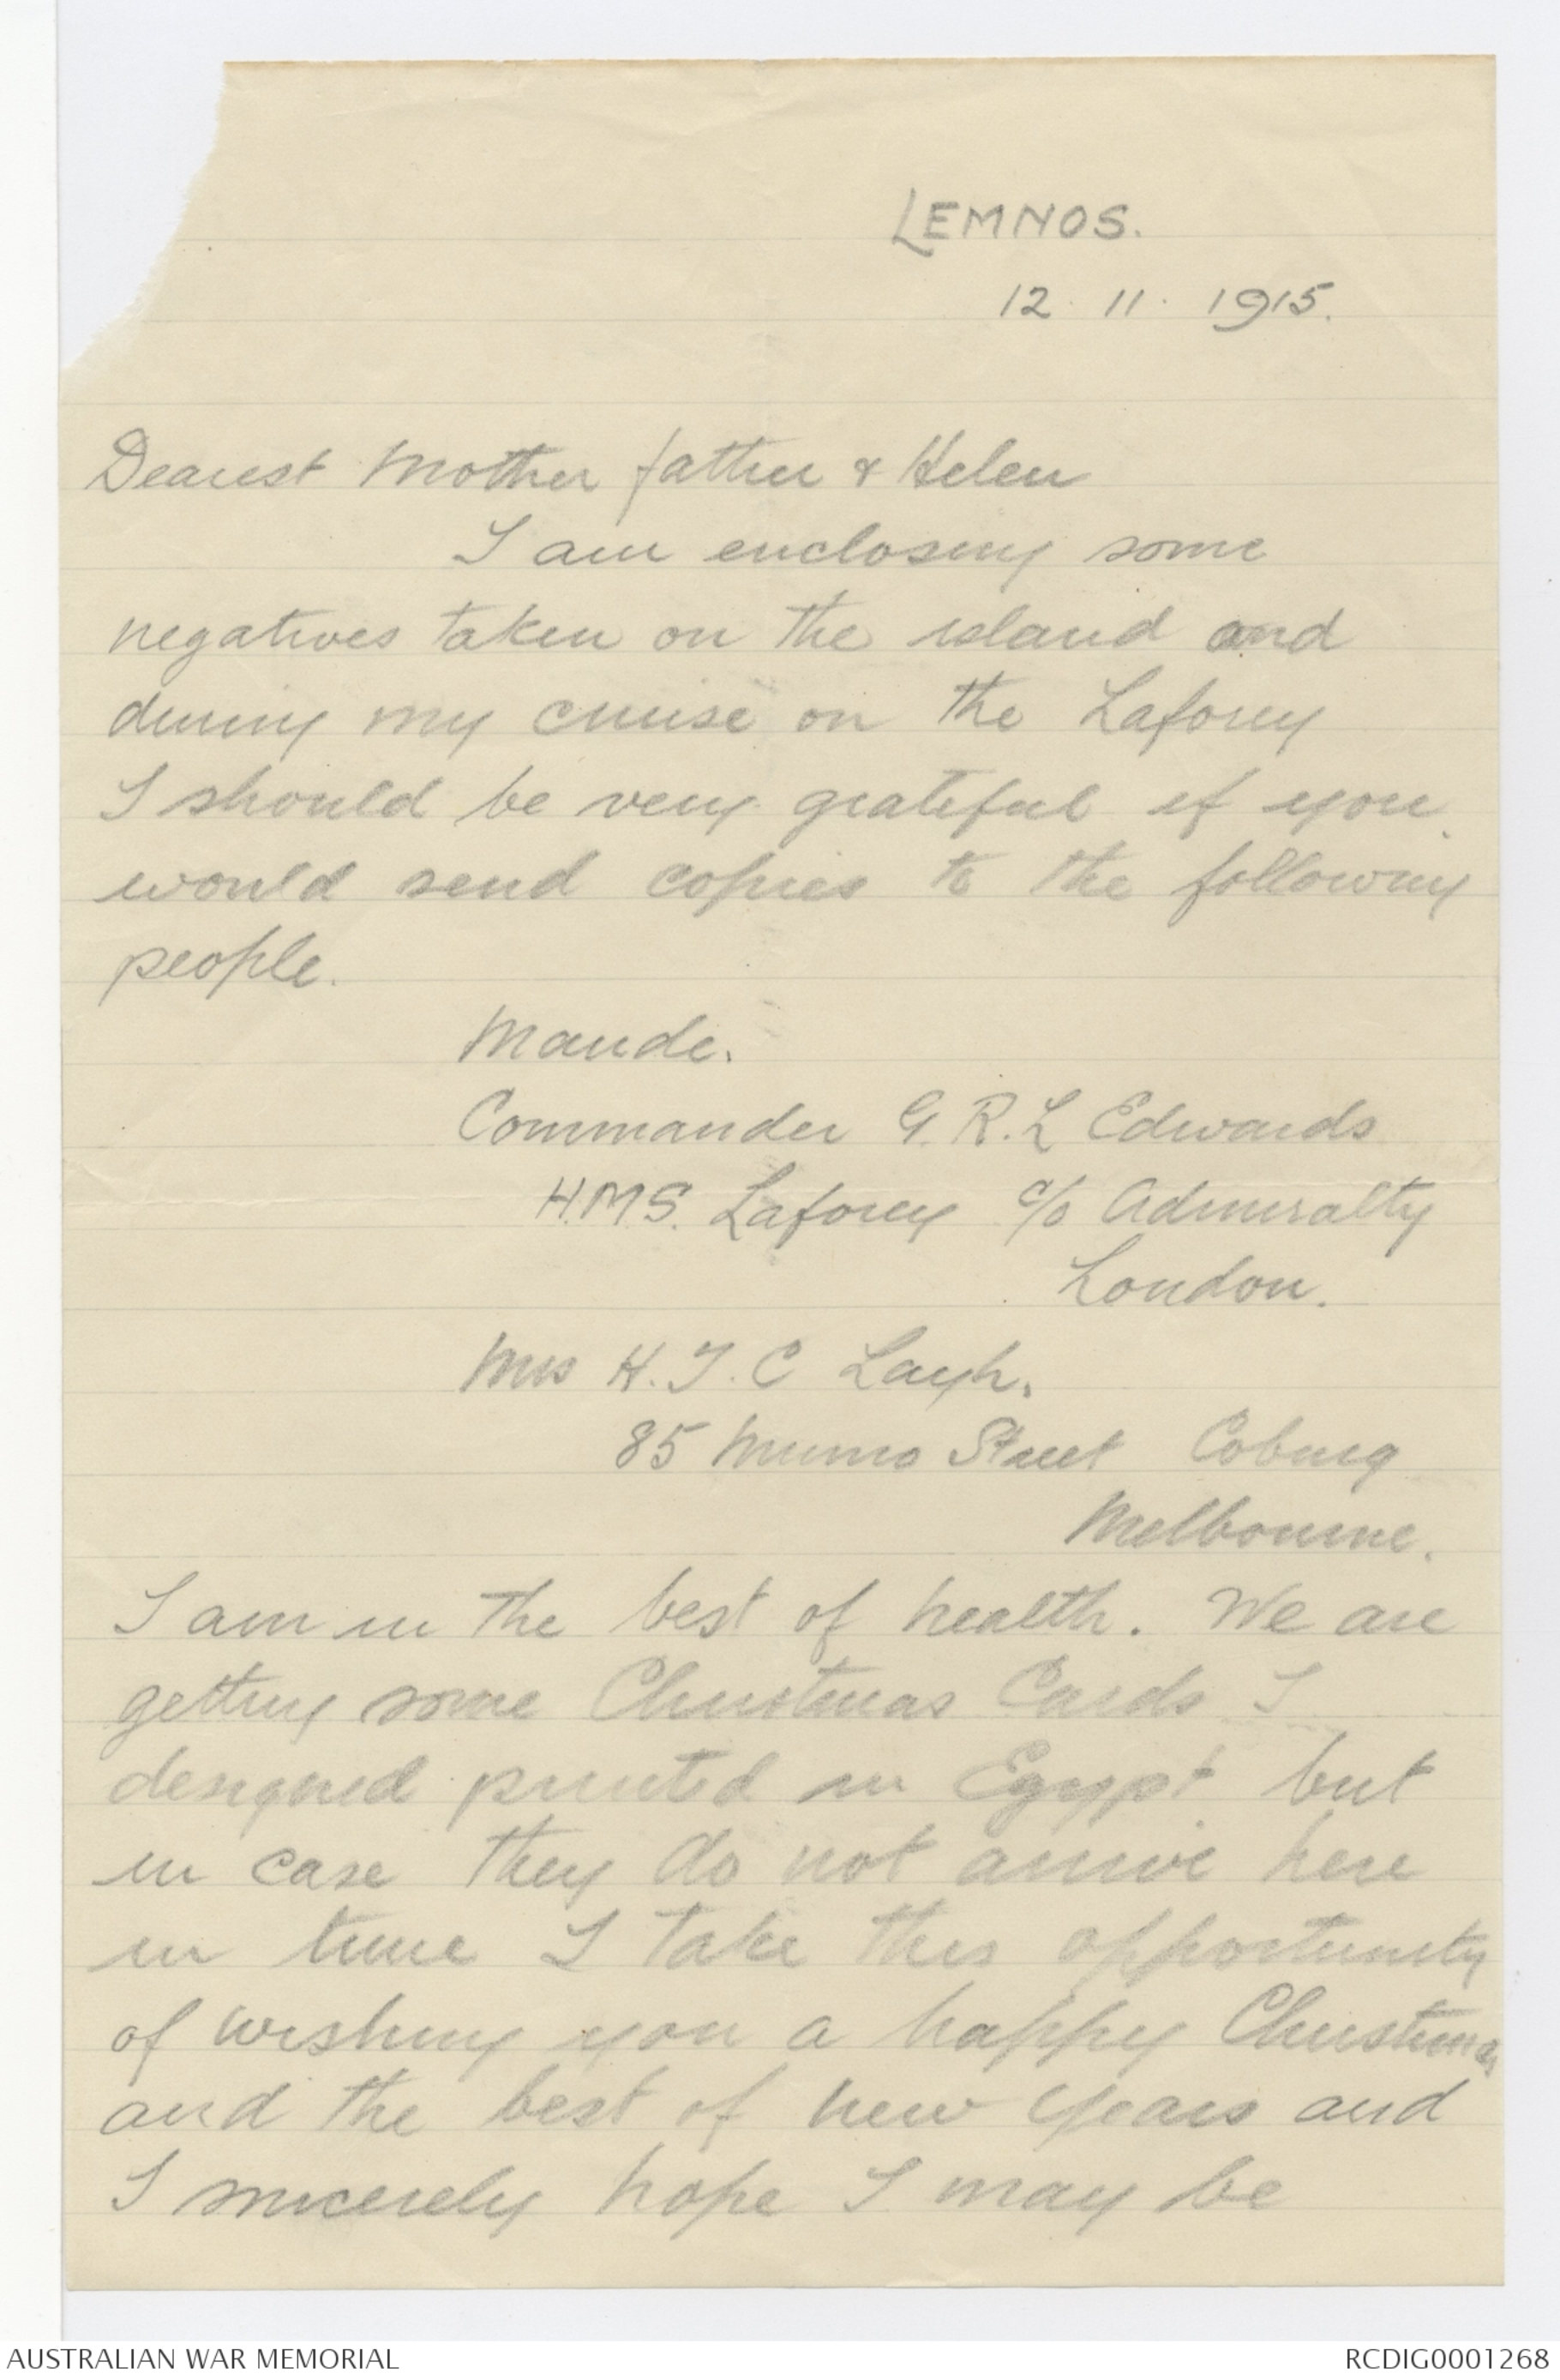 LEMNOS.
12. 11. 1915.
Dearest Mother father & Helen
I am enclosing some
negatives taken on the island and
during my cruise on the Laforey
I should be very grateful if you
would send copies to the following
people.
Maude.
Commander G. R. L Edwards
H.M.S. Laforey c/o Admiralty
London.
Mrs H. T. C Layh.
85 Munro Street Coburg
Melbourne.
I am in the best of health. We are
getting some Christmas Cards I
designed printed in Egypt but
in case they do not arrive here
in time I take this opportunity
of wishing you a happy Christmas
and the best of new years and
I sincerely hope I may be
AUSTRALIAN WAR MEMORIAL
RCDIG0001268